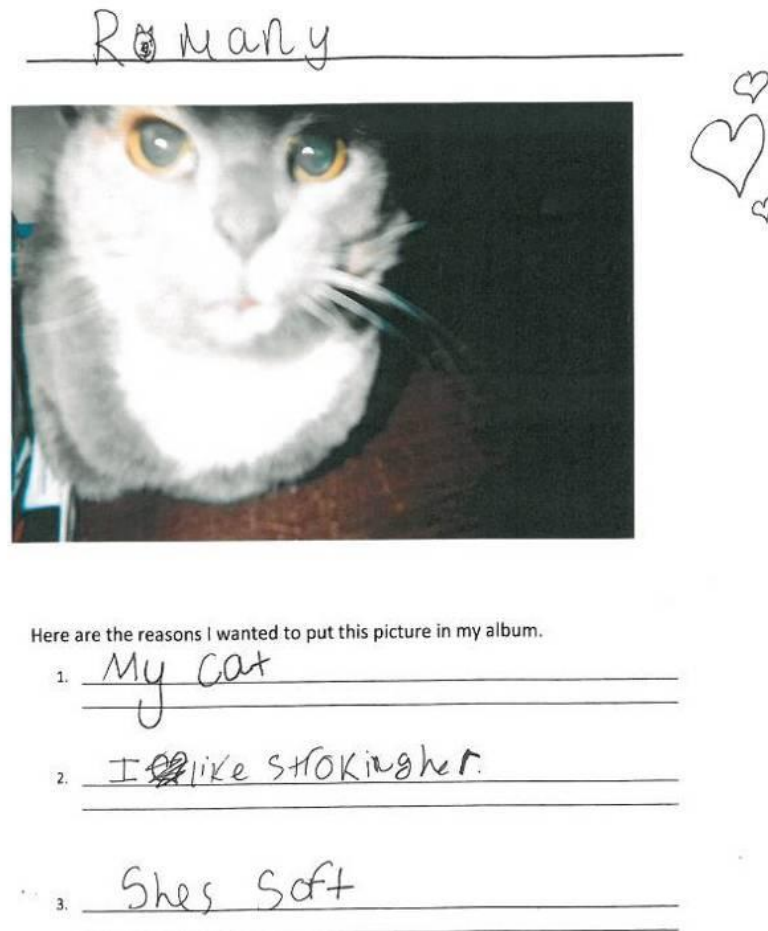 Romany
Here are the reasons I wanted to put this picture in my album.
1. My cat
2. I like stroking her.
3. Shes soft